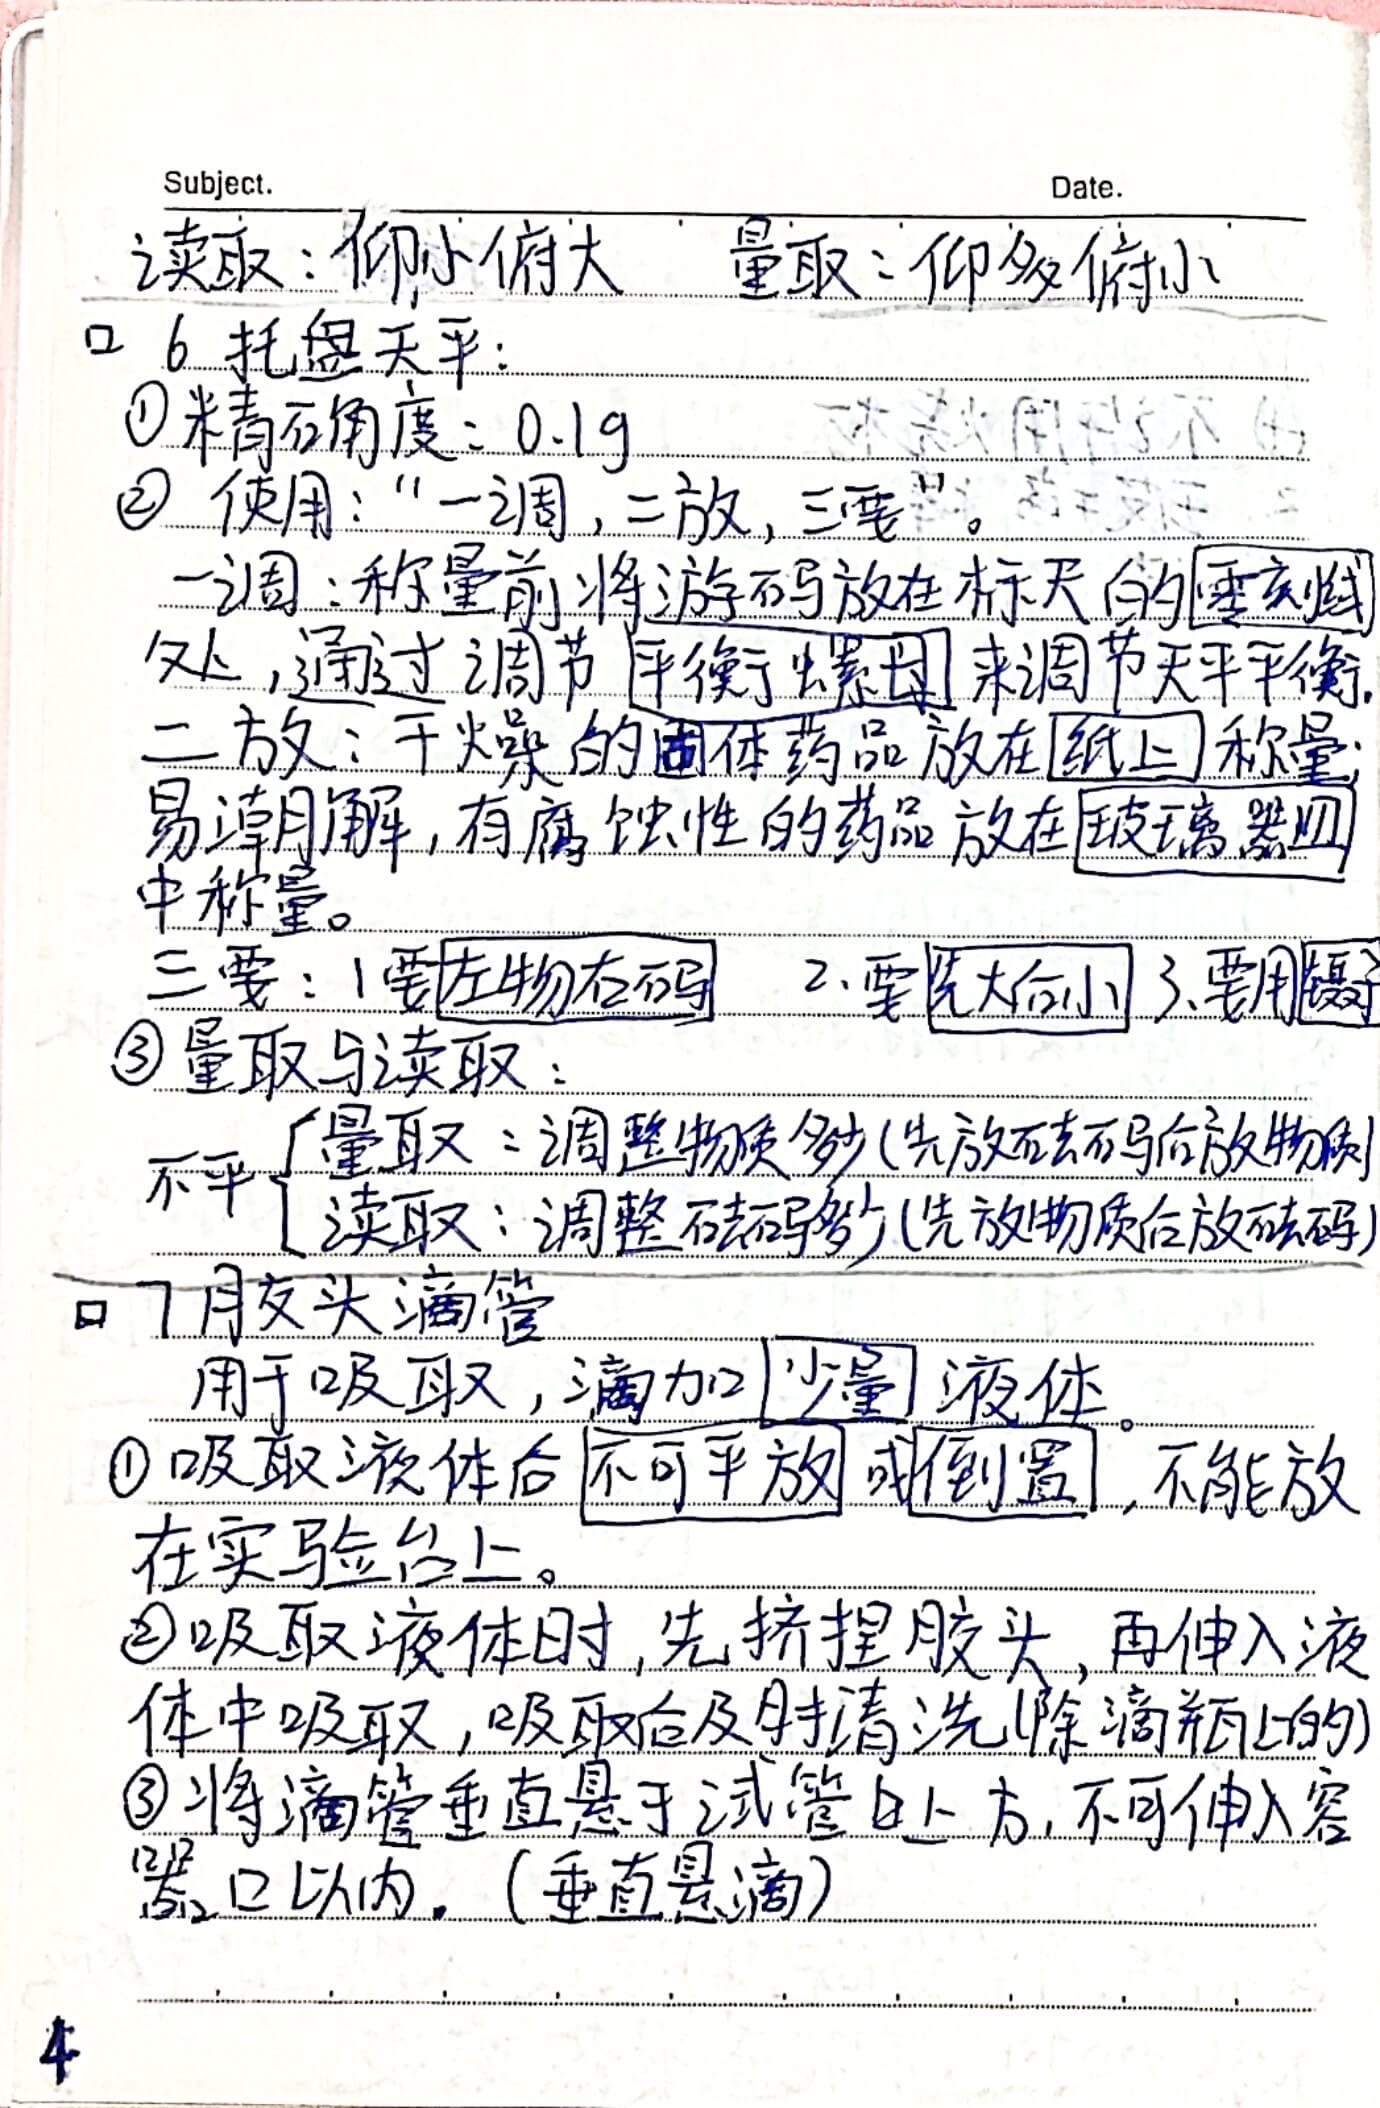 Subject. Date.
读取：仰小俯大 量取：仰多俯小
口 6 托盘天平：
①精确度：0.1g
② 使用：“一调，二放，三要”。
一调：称量前将游码放在标尺的零刻线
处，通过调节平衡螺母来调节天平平衡.
二放：干燥的固体药品放在纸上称量；
易潮解，有腐蚀性的药品放在玻璃器皿
中称量。
三要：1 要左物右码 2、要先大后小 3、要用镊子
③量取与读取：
不平 量取：调整物质多少(先放砝码后放物质)
读取：调整砝码多少(先放物质后放砝码)
口 7 胶头滴管
用于吸取，滴加少量液体。
①吸取液体后不可平放或倒置，不能放
在实验台上。
②吸取液体时，先挤捏胶头，再伸入液
体中吸取，吸取后及时清洗(除滴瓶上的)
③将滴管垂直悬于试管口上方，不可伸入容
器口以内.（垂直悬滴）
4